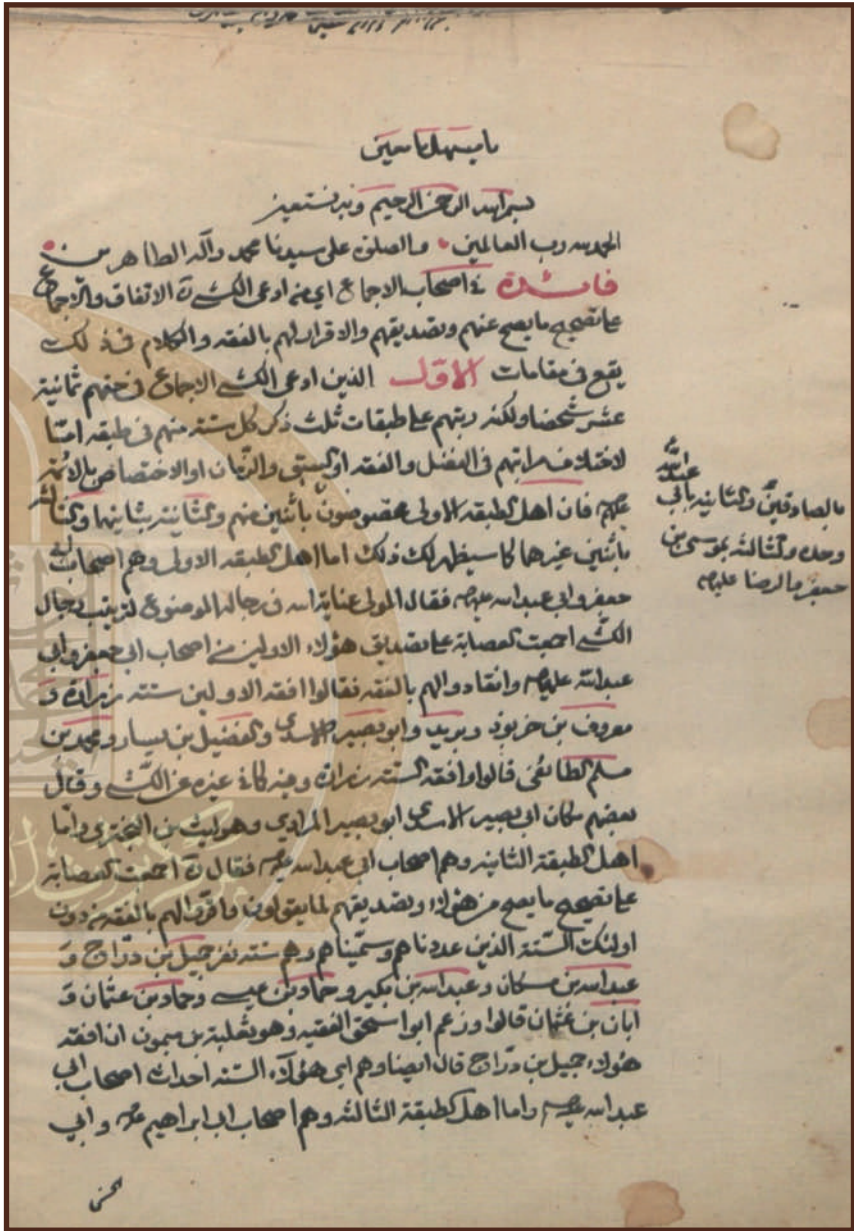 بسم الله الرحمن الرحيم وبه نستعين
الحمد لله رب العالمين والصلوة على سيدنا محمد وآله الطاهرين
فائدة في اصحاب الاجماع اي من ادعى الكشي ره الاتفاق والاجماع
على تصحيح ما يصح عنهم وتصديقهم والاقرار لهم بالفقه والكلام في ذلك
يقع في مقامات الاول الذين ادعى الكشي الاجماع في حقهم ثمانية
عشر شخصا ولكنه رتبهم على طبقات ثلث ذكر كل ستة منهم في طبقه امّا
لاختلاف مراتبهم في الفضل والفقه او السبق والزمان او الاختصاص بالائمة
عليهم فان اهل الطبقه الاولى مخصوصون باثنين منهم والثانية بثانيهما والثالثة
باثنين غيرها كما سيظهر لك ذلك اما اهل الطبقه الاولى وهم اصحاب ابي
جعفر وابي عبد الله عليهم فقال المولى عناية الله في رجاله الموضوع لترتيب رجال
الكشي اجمعت العصابة على تصديق هؤلاء الاولين من اصحاب ابي جعفر وابي
عبد الله عليهم وانقادوا لهم بالفقه فقالوا افقه الاولين ستة زرارة و
معروف بن خربوذ وبريد وابو بصير الاسدي والفضيل بن يسار ومحمد بن
مسلم الطائفي قالوا وافقه الستة زرارة وفيه كما في غيره عن الكشي وقال
بعضهم مكان ابي بصير الاسدي ابو بصير المرادي وهو ليث بن البختري واما
اهل الطبقة الثانيه وهم اصحاب ابي عبد الله عليه فقال ره اجمعت العصابة
على تصحيح ما يصح من هؤلاء وتصديقهم لما يقولون واقروا لهم بالفقه من دون
اولئك الستة الذين عددناهم وسمّيناهم وهم ستة نفر جميل بن درّاج و
عبد الله بن مسكان وعبد الله بن بكير وحماد بن عيسى وحماد بن عثمان و
ابان بن عثمان قالوا وزعم ابو اسحق الفقيه وهو ثعلبة بن ميمون ان افقه
هؤلاء جميل بن درّاج قال ايضا وهم اي هؤلاء الستة احداث اصحاب ابي
عبد الله عليه واما اهل الطبقة الثالثه وهم اصحاب ابي ابراهيم عليه وابي
الحسن
عبد الله
بالصادقين والثانيه بابي
وحده والثالثه بموسى بن
جعفر والرضا عليهم